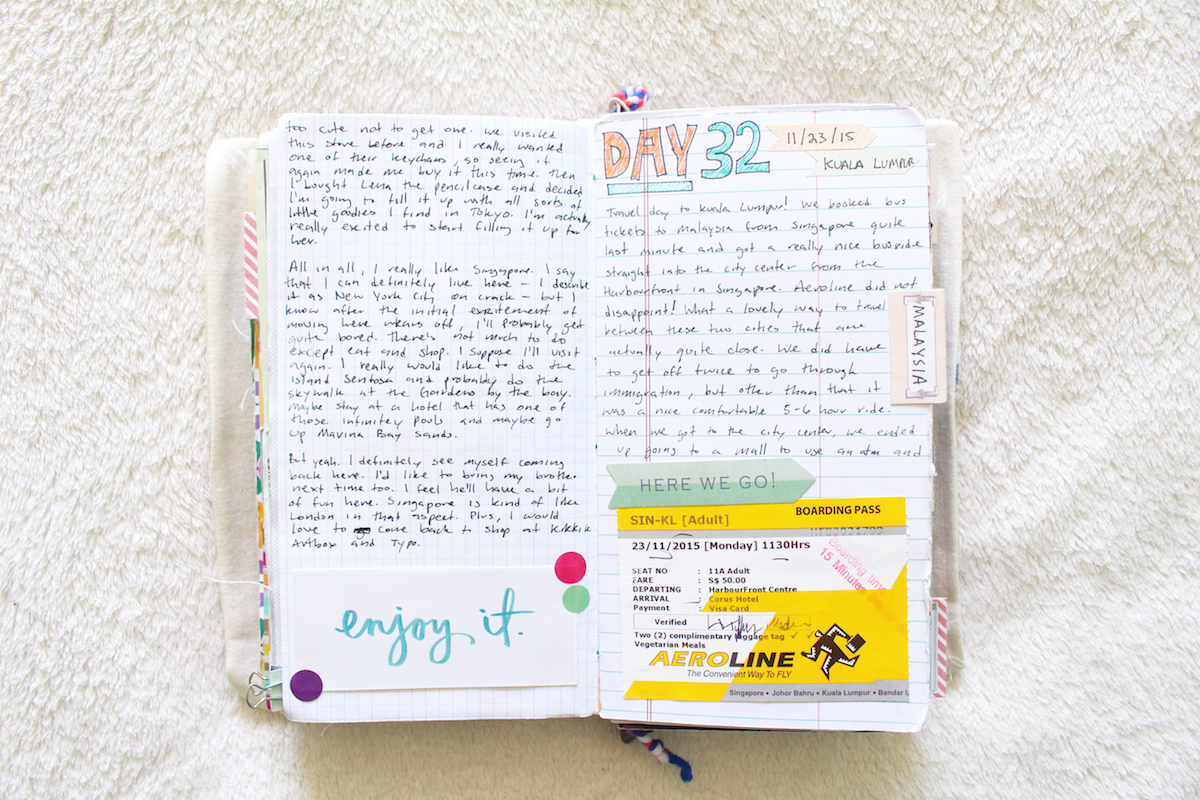 too cute not to get one. We visited
this store before and I really wanted
one of their keychains, so seeing it
again made me buy it this time. Then
I bought Lena the pencilcase and decided
I'm going to fill it up with all sorts of
little goodies I find in Tokyo. I'm actually
really excited to start filling it up for
her.
All in all, I really like Singapore. I say
that I can definitely live here — I describe
it as New York City on crack — but I
know after the initial excitement of
moving here wears off, I'll probably get
quite bored. There's not much to do
except eat and shop. I suppose I'll visit
again. I really would like to do the
island Sentosa and probably do the
skywalk at the Gardens by the bay.
Maybe stay at a hotel that has one of
those infinity pools and maybe go
up Marina Bay Sands.
But yeah. I definitely see myself coming
back here. I'd like to bring my brother
next time too. I feel he'll have a bit
of fun here. Singapore is kind of like
London in that aspect. Plus, I would
love to come back to shop at Kikki.K
Artbox and Typo.
enjoy it.
DAY 32
11/23/15
KUALA LUMPUR
Travel day to Kuala Lumpur! We booked bus
tickets to Malaysia from Singapore quite
last minute and got a really nice bus ride
straight into the city center from the
Harbourfront in Singapore. Aeroline did not
disappoint! What a lovely way to travel
between these two cities that are
actually quite close. We did have
to get off twice to go through
immigration, but other than that it
was a nice comfortable 5-6 hour ride.
When we got to the city center, we ended
up going to a mall to use an atm and
MALAYSIA
HERE WE GO!
BOARDING PASS
SIN-KL [Adult]
23/11/2015 [Monday] 1130Hrs
Boarding time
15 Minutes
SEAT NO : 11A Adult
FARE : S$ 50.00
DEPARTING : HarbourFront Centre
ARRIVAL : Corus Hotel
Payment : Visa Card
Verified
Two (2) complimentary luggage tag
Vegetarian Meals
AEROLINE
The Convenient Way To FLY
Singapore • Johor Bahru • Kuala Lumpur • Bandar U